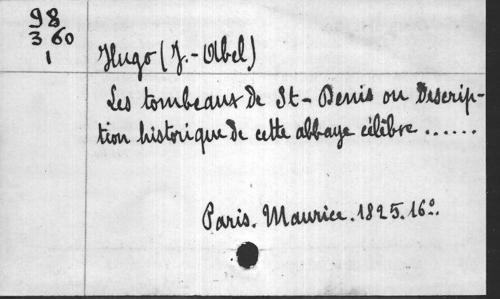 98
360
1
Hugo (J.-Abel)
Les tombeaux de St-Denis ou Descrip-
tion historique de cette abbaye célèbre ......
Paris. Maurice. 1825. 16º.